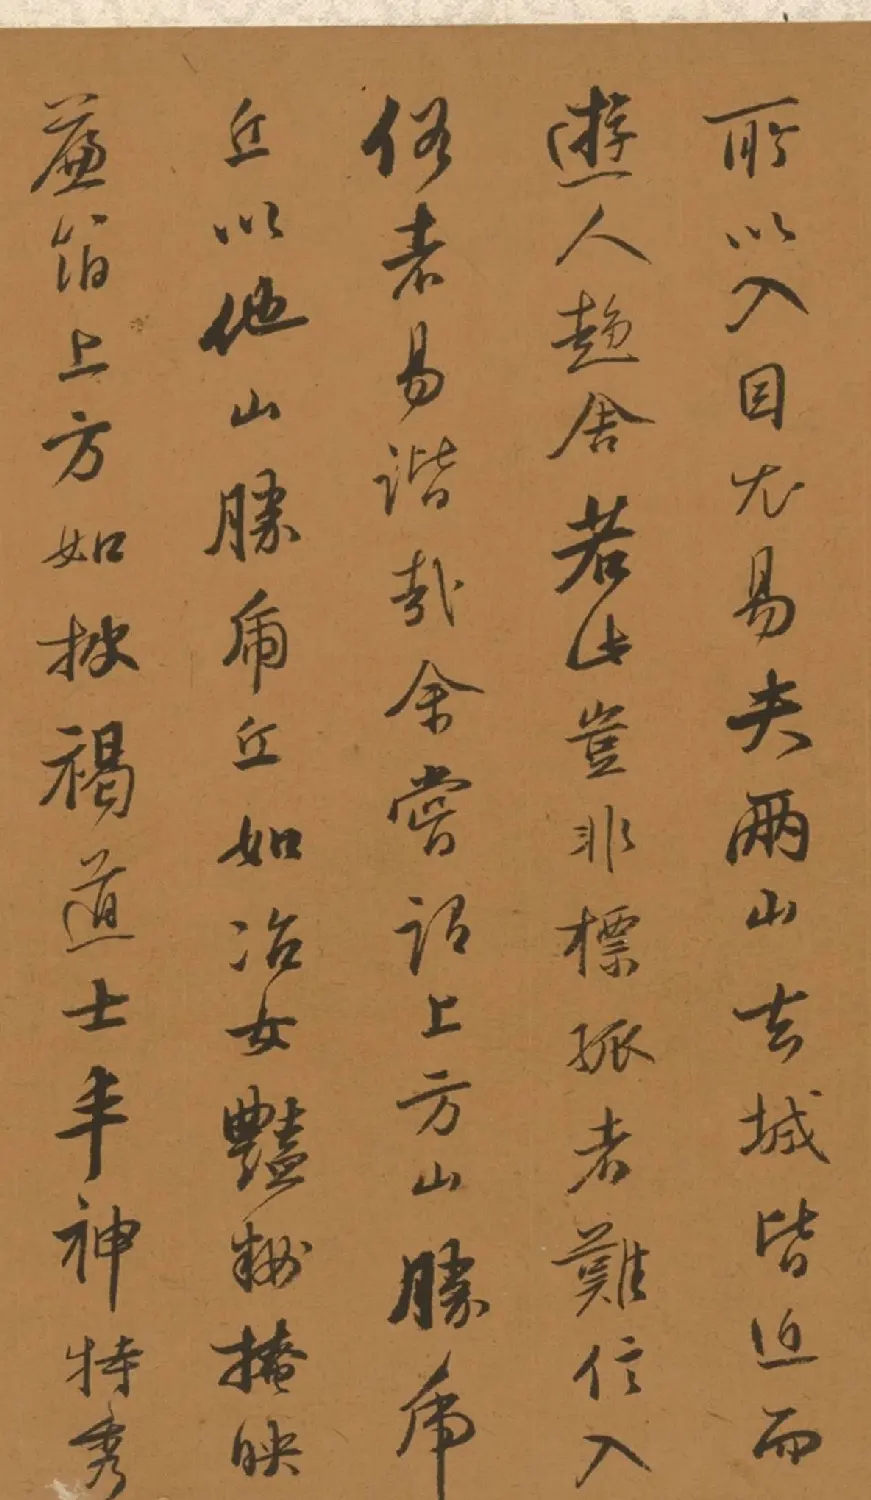 所以入目尤易夫兩山去城皆近而
遊人趍舍若此豈非標孤者難信入
俗者易諧哉余嘗謂上方山勝虎
丘以他山勝虎丘如冶女艷粧掩映
簾箔上方如披褐道士丰神特秀